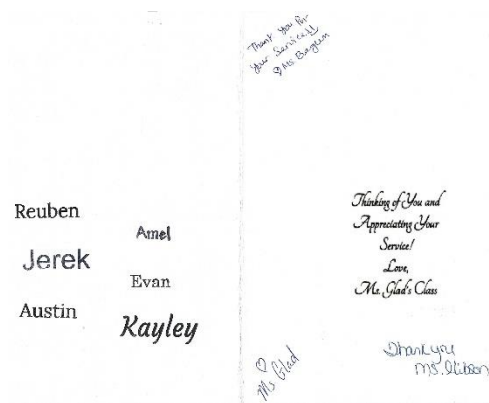 Reuben
Jerek
Austin
Amel
Evan
Kayley
Thank You for
Your Service!!
♡ Ms
Thinking of You and
Appreciating Your
Service!
Love,
Ms. Glad's Class
♡
Ms Glad
Thank you
Ms.